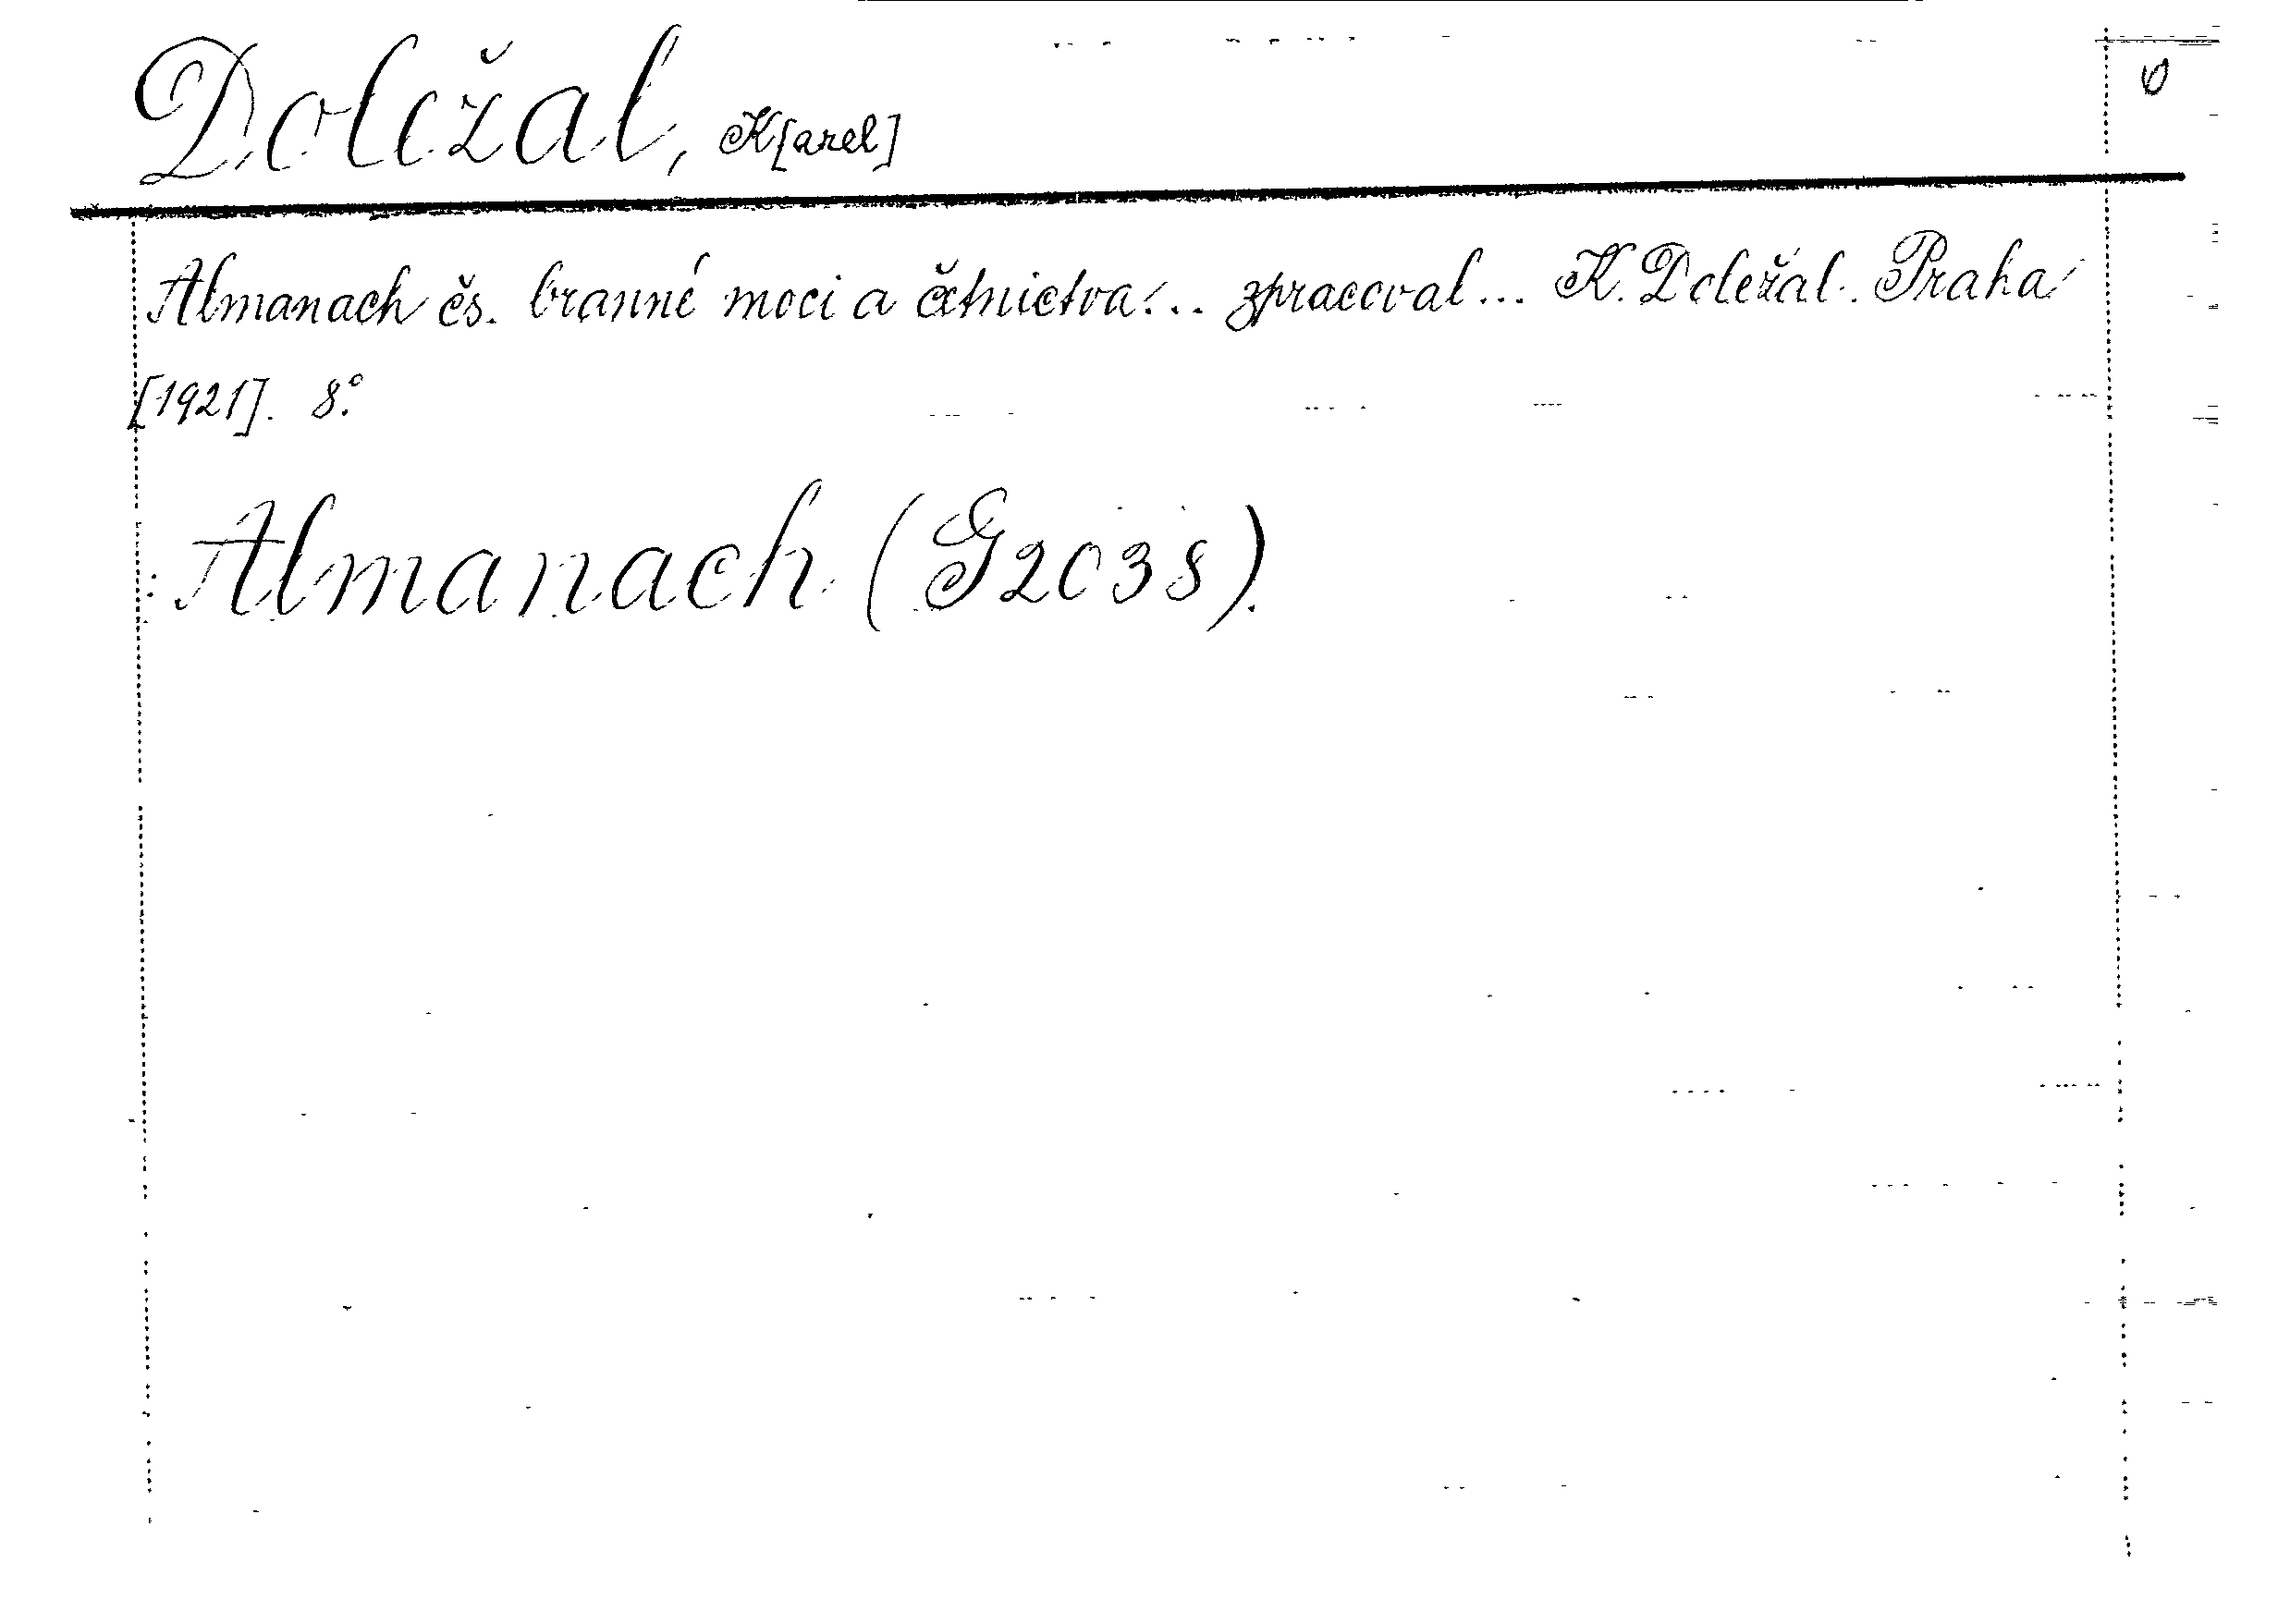 Doležal, K[arel]
Almanach čs. branné moci a četnictva... zpracoval... K. Doležal. Praha
[1921]. 8°.
: Almanach (G2038).